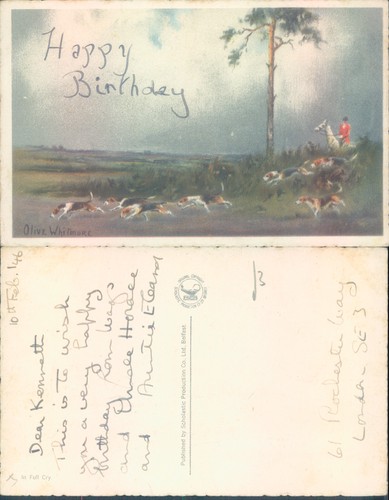 Happy
Birthday
Olive Whitmore
10th Feb. '46
Dear Kenneth
This is to wish
you a very happy
Birthday from
and Uncle Horace
and Auntie Eleanor
Published by Scholastic Production Co. Ltd. Belfast
61 Rochester Way
London SE 3
In Full Cry